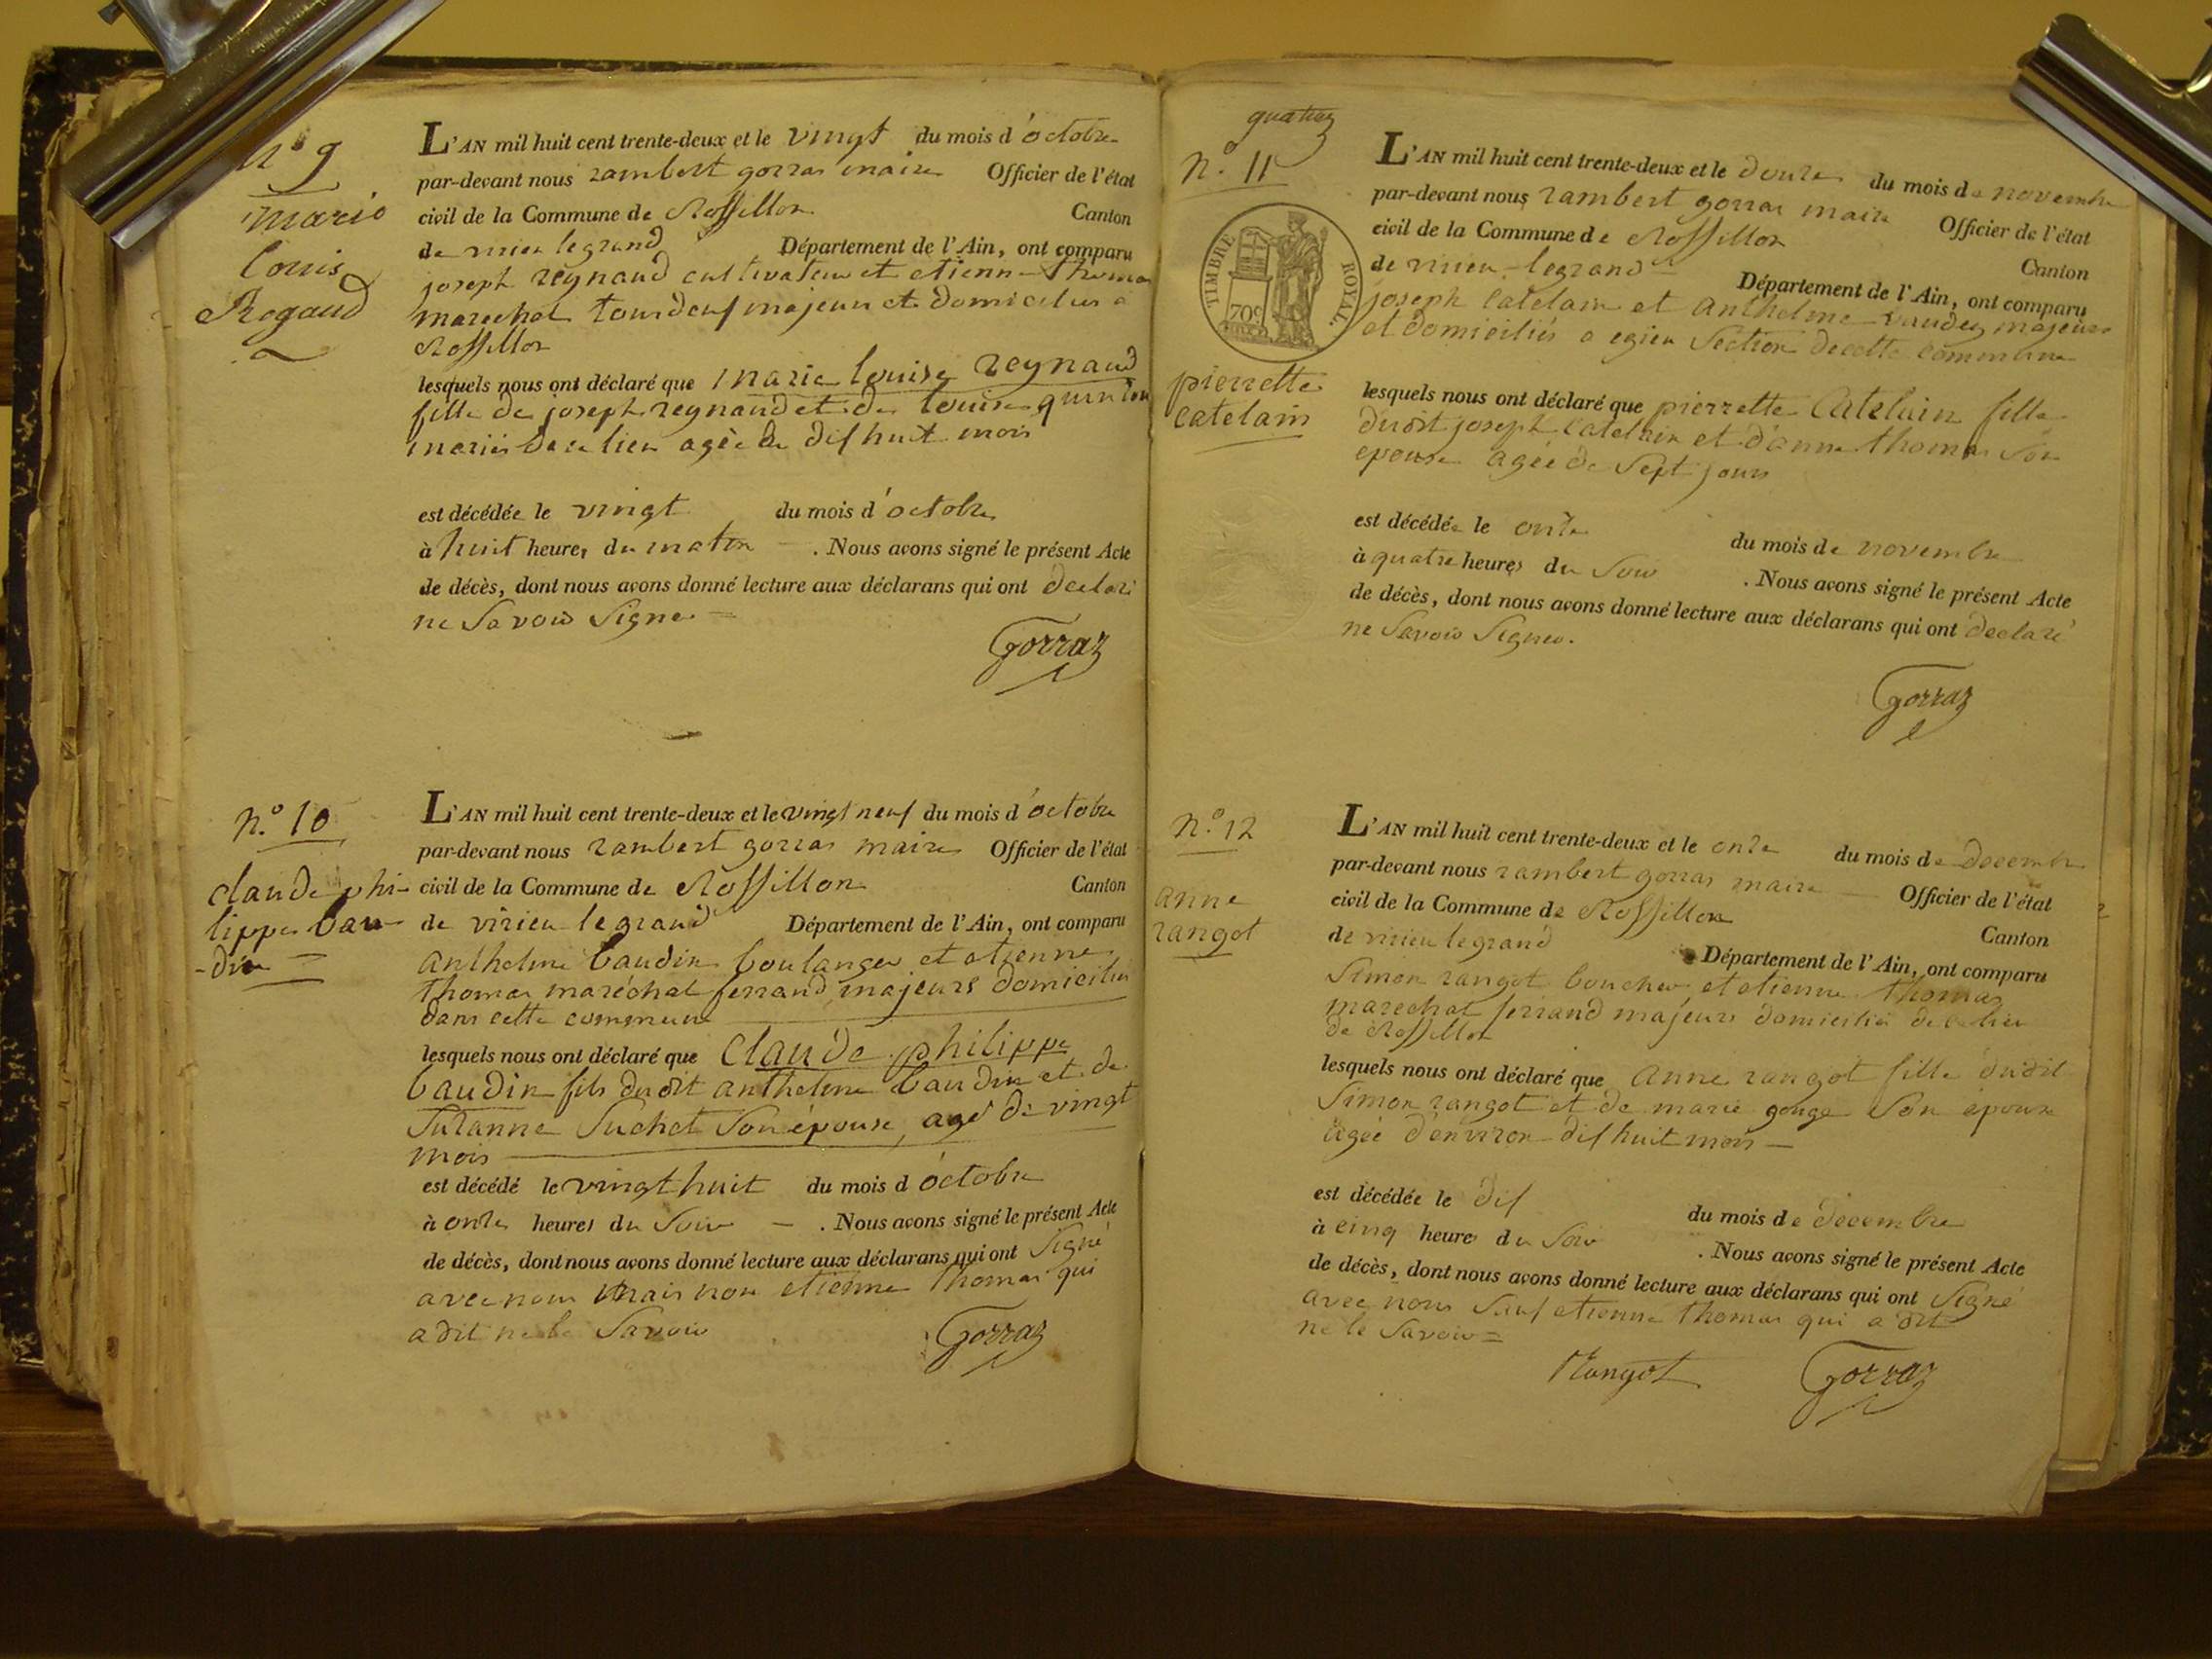 n° 9
marie
louis
Regaud
L'AN mil huit cent trente-deux et le vingt du mois d'octobre
par-devant nous rambert gorras maire Officier de l'état
civil de la Commune de Rossillon Canton
de virieu legrand Département de l'Ain, ont comparu
joseph reynaud cultivateur et etienne thomas
marechal tous deux majeurs et domicilies a
Rossillon
lesquels nous ont déclaré que marie louise reynaud
fille de joseph reynaud et de louise quinson
mariés de ce lieu agée de dix huit mois
est décédée le vingt du mois d'octobre
à huit heures du matin . Nous avons signé le présent Acte
de décès, dont nous avons donné lecture aux déclarans qui ont declaré
ne Savoir Signer
Gorraz
n.° 10
claude phi-
lippe bau-
-din
L'AN mil huit cent trente-deux et le vingt neuf du mois d'octobre
par-devant nous rambert gorras maire Officier de l'état
civil de la Commune de Rossillon Canton
de virieu le grand Département de l'Ain, ont comparu
anthelme baudin boulanger et etienne
thomas maréchal ferrand, majeurs domicilies
dans cette commune
lesquels nous ont déclaré que Claude philippe
baudin fils dudit anthelme baudin et de
Suzanne Suchet Son épouse, agé de vingt
mois
est décédé le vingt huit du mois d'octobre
à onze heures du Soir — . Nous avons signé le présent Acte
de décès, dont nous avons donné lecture aux déclarans qui ont Signé
avec nous mais non etienne thomas qui
a dit ne le Savoir
Gorraz
quatre
n.° 11
TIMBRE ROYAL
70c
pierrette
catelain
L'AN mil huit cent trente-deux et le douze du mois de novembre
par-devant nous rambert gorras maire Officier de l'état
civil de la Commune de Rossillon Canton
de virieu-legrand Département de l'Ain, ont comparu
joseph Catelain et anthelme vaudey majeurs
et domiciliés a egieu Section de cette commune
lesquels nous ont déclaré que pierrette Catelain fille
dudit joseph Catelain et d'anne thomas Son
epouse agée de Sept jours
est décédée le onze du mois de novembre
à quatre heures du Soir . Nous avons signé le présent Acte
de décès, dont nous avons donné lecture aux déclarans qui ont declaré
ne Savoir Signer.
Gorraz
n.° 12
anne
rangot
L'AN mil huit cent trente-deux et le onze du mois de decembre
par-devant nous rambert gorras maire Officier de l'état
civil de la Commune de Rossillon Canton
de virieu legrand Département de l'Ain, ont comparu
Simon rangot boucher et etienne thomas
marechal ferrand majeurs domiciliés de ce lieu
de Rossillon
lesquels nous ont déclaré que anne rangot fille dudit
Simon rangot et de marie gouge Son epouse
agée d'environ dix huit mois —
est décédée le dix du mois de decembre
à cinq heures du Soir . Nous avons signé le présent Acte
de décès, dont nous avons donné lecture aux déclarans qui ont Signé
avec nous Sauf etienne thomas qui a dit
ne le Savoir =
Rangot Gorraz